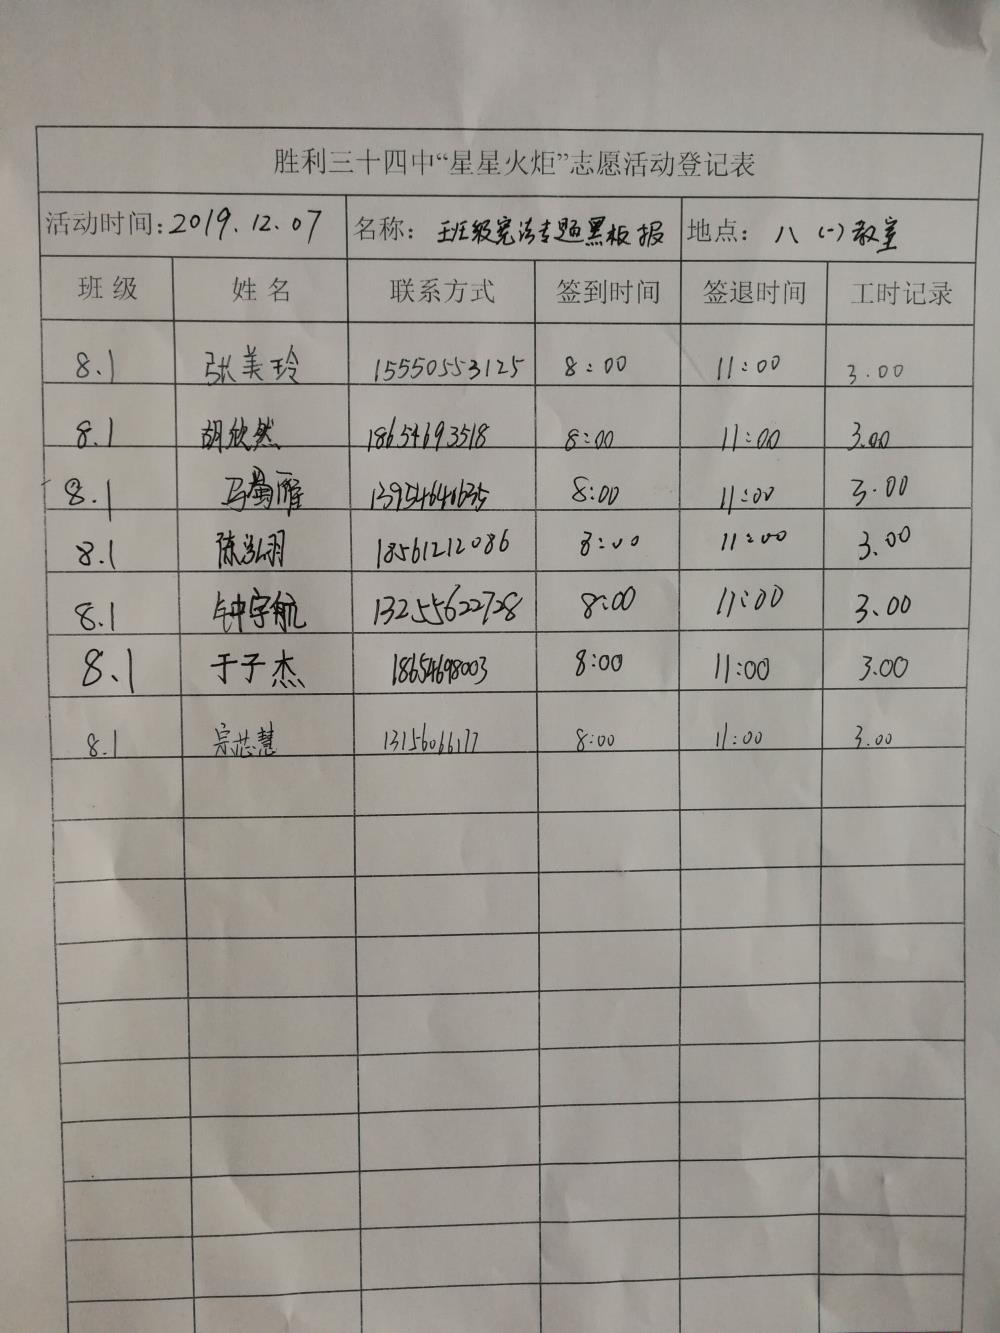 胜利三十四中“星星火炬”志愿活动登记表
活动时间:2019.12.07 名称: 班级宪法专题黑板报 地点: 八(一)教室
班级 姓名 联系方式 签到时间 签退时间 工时记录
8.1 张美玲 15550553125 8:00 11:00 3.00
8.1 胡欣然 18654693518 8:00 11:00 3.00
8.1 马 雁 13954640635 8:00 11:00 3.00
8.1 陈泓羽 18561212086 8:00 11:00 3.00
8.1 钟宇航 13255622728 8:00 11:00 3.00
8.1 于子杰 18654698003 8:00 11:00 3.00
8.1 宗芯慧 13156066177 8:00 11:00 3.00